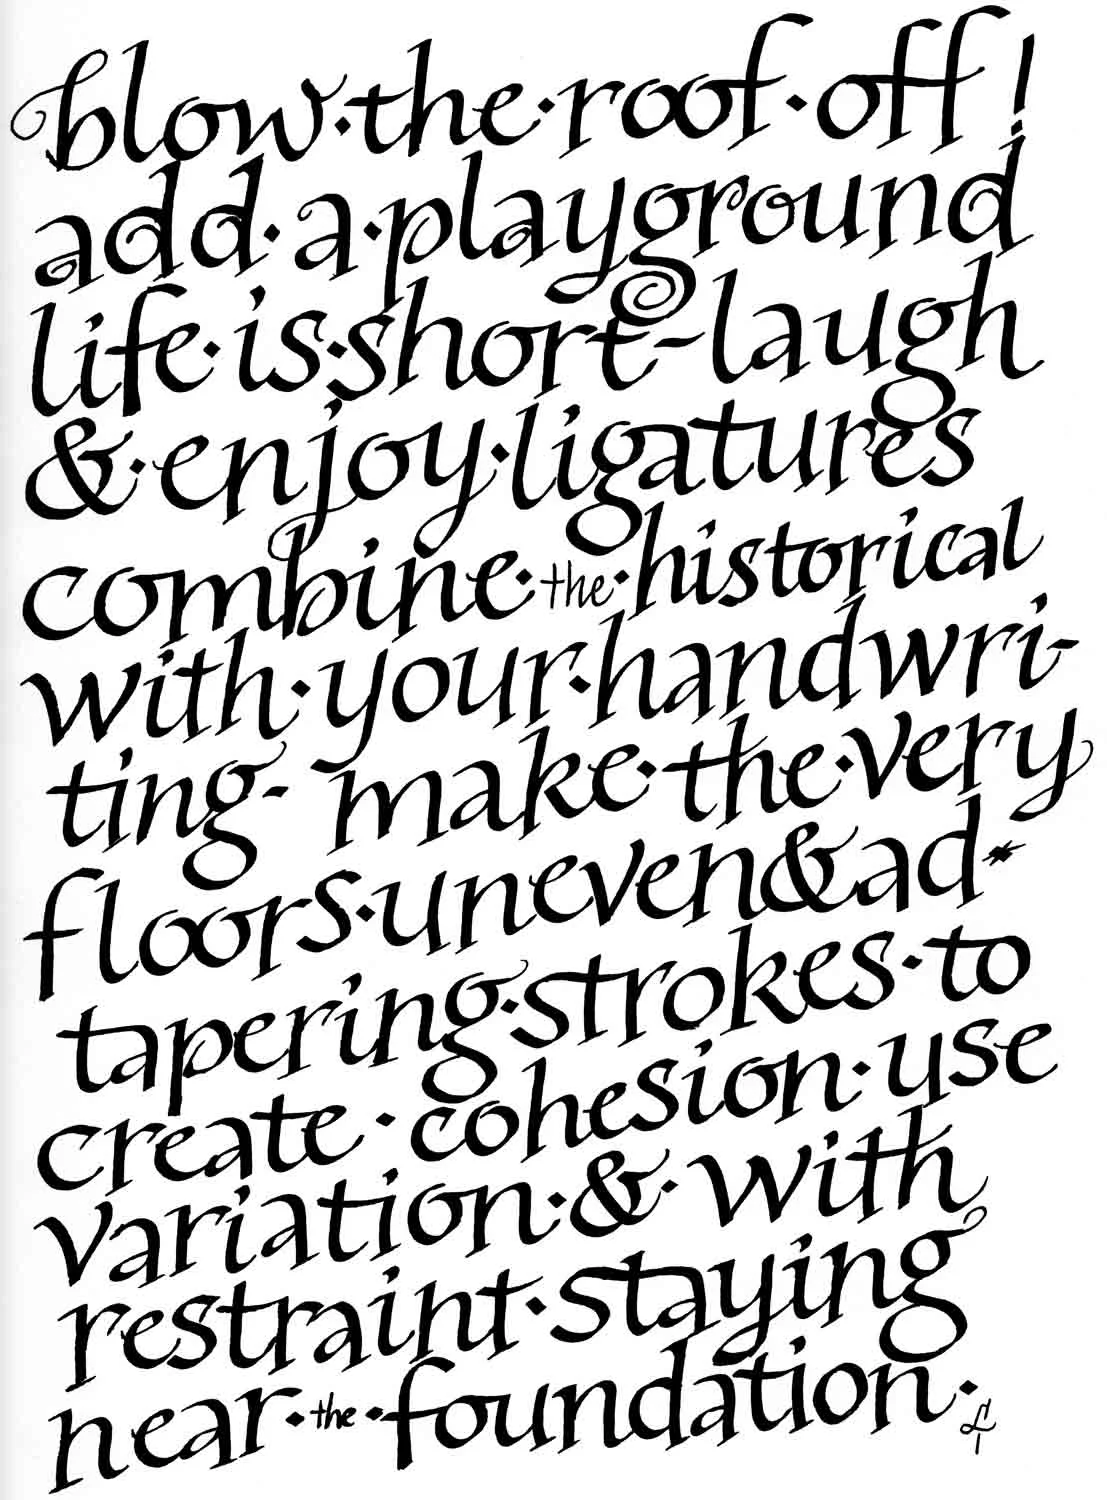 blow·the·roof·off!
add·a·playground
life·is·short-laugh
&·enjoy·ligatures
combine·the·historical
with·your·handwri-
ting- make·the·very
floors·uneven&ad*
tapering·strokes·to
create·cohesion·use
variation·&·with
restraint·staying
near·the·foundation.